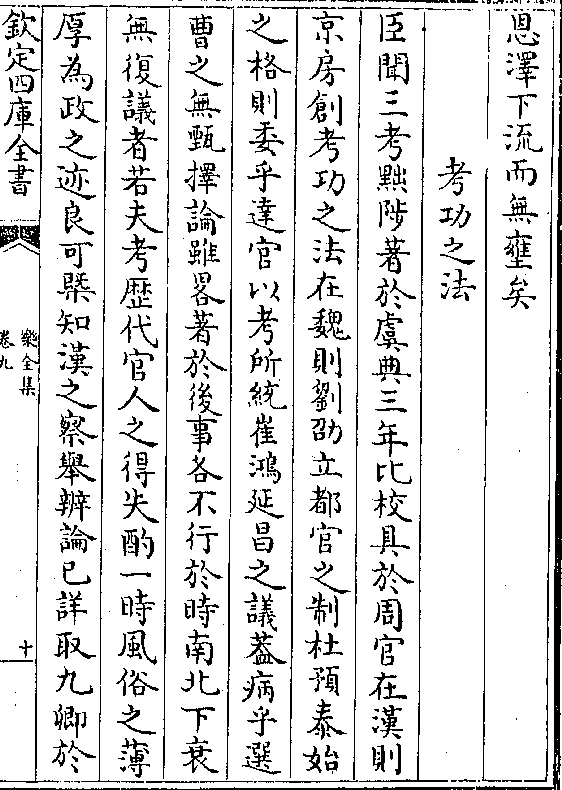 恩澤下流而無壅矣
考功之法
臣聞三考黜陟著於虞典三年比校具於周官在漢則
京房創考功之法在魏則劉邵立都官之制杜預泰始
之格則委乎達官以考所統崔鴻延昌之議葢病乎選
曹之無甄擇論雖畧著於後事各不行於時南北下衰
無復議者若夫考歴代官人之得失酌一時風俗之薄
厚為政之迹良可槩知漢之察舉辨論已詳取九卿於
欽定四庫全書
樂全集
卷九
十